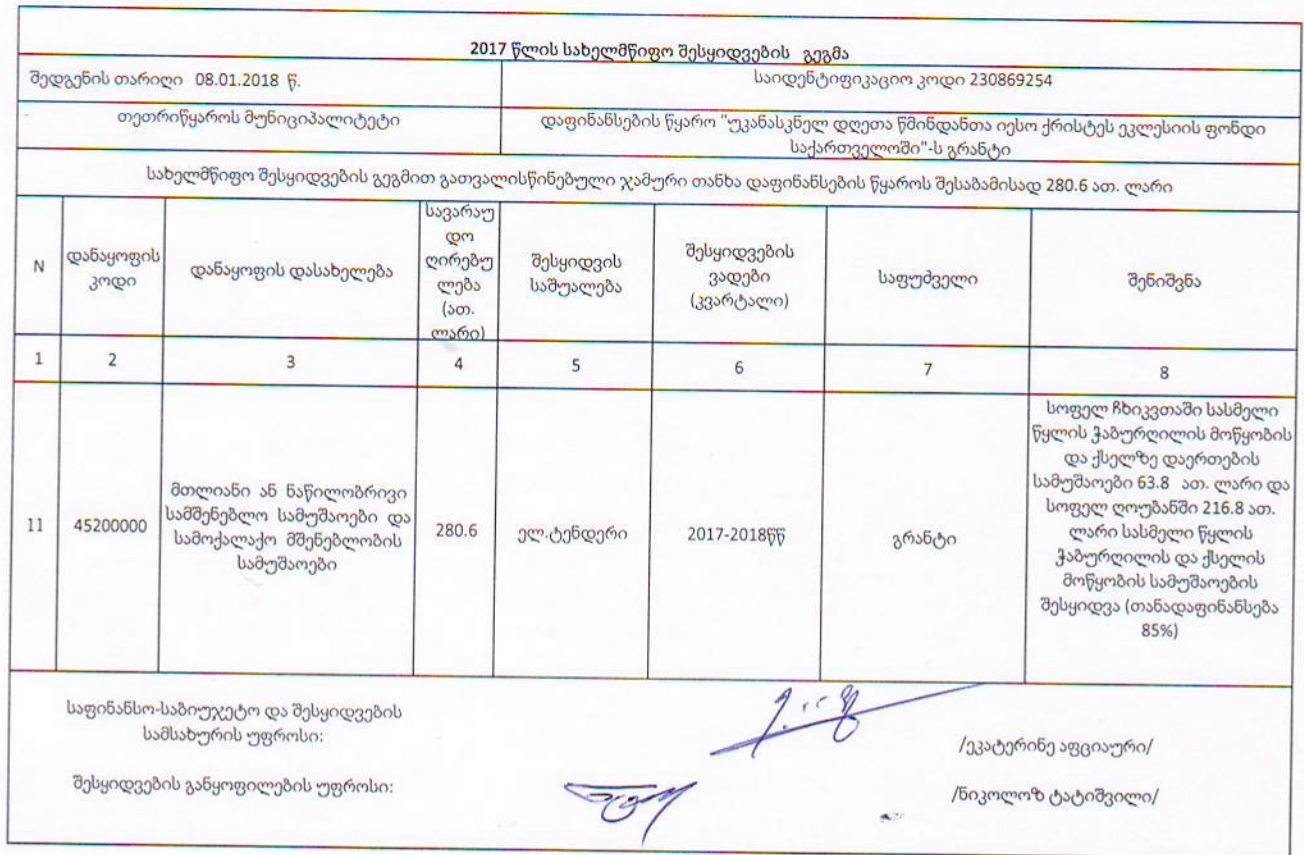 2017 წლის სახელმწიფო შესყიდვების გეგმა
შედგენის თარიღი 08.01.2018 წ.
საიდენტიფიკაციო კოდი 230869254
თეთრიწყაროს მუნიციპალიტეტი
დაფინანსების წყარო "უკანასკნელ დღეთა წმინდანთა იესო ქრისტეს ეკლესიის ფონდი
საქართველოში"-ს გრანტი
სახელმწიფო შესყიდვების გეგმით გათვალისწინებული ჯამური თანხა დაფინანსების წყაროს შესაბამისად 280.6 ათ. ლარი
N
დანაყოფის
კოდი
დანაყოფის დასახელება
სავარაუ
დო
ღირებუ
ლება
(ათ.
ლარი)
შესყიდვის
საშუალება
შესყიდვების
ვადები
(კვარტალი)
საფუძველი
შენიშვნა
1
2
3
4
5
6
7
8
11
45200000
მთლიანი ან ნაწილობრივი
სამშენებლო სამუშაოები და
სამოქალაქო მშენებლობის
სამუშაოები
280.6
ელ.ტენდერი
2017-2018წწ
გრანტი
სოფელ ჩხიკვთაში სასმელი
წყლის ჭაბურღილის მოწყობის
და ქსელზე დაერთების
სამუშაოები 63.8 ათ. ლარი და
სოფელ ღოუბანში 216.8 ათ.
ლარი სასმელი წყლის
ჭაბურღილის და ქსელის
მოწყობის სამუშაოების
შესყიდვა (თანადაფინანსება
85%)
საფინანსო-საბიუჯეტო და შესყიდვების
სამსახურის უფროსი:
/ეკატერინე აფციაური/
შესყიდვების განყოფილების უფროსი:
/ნიკოლოზ ტატიშვილი/